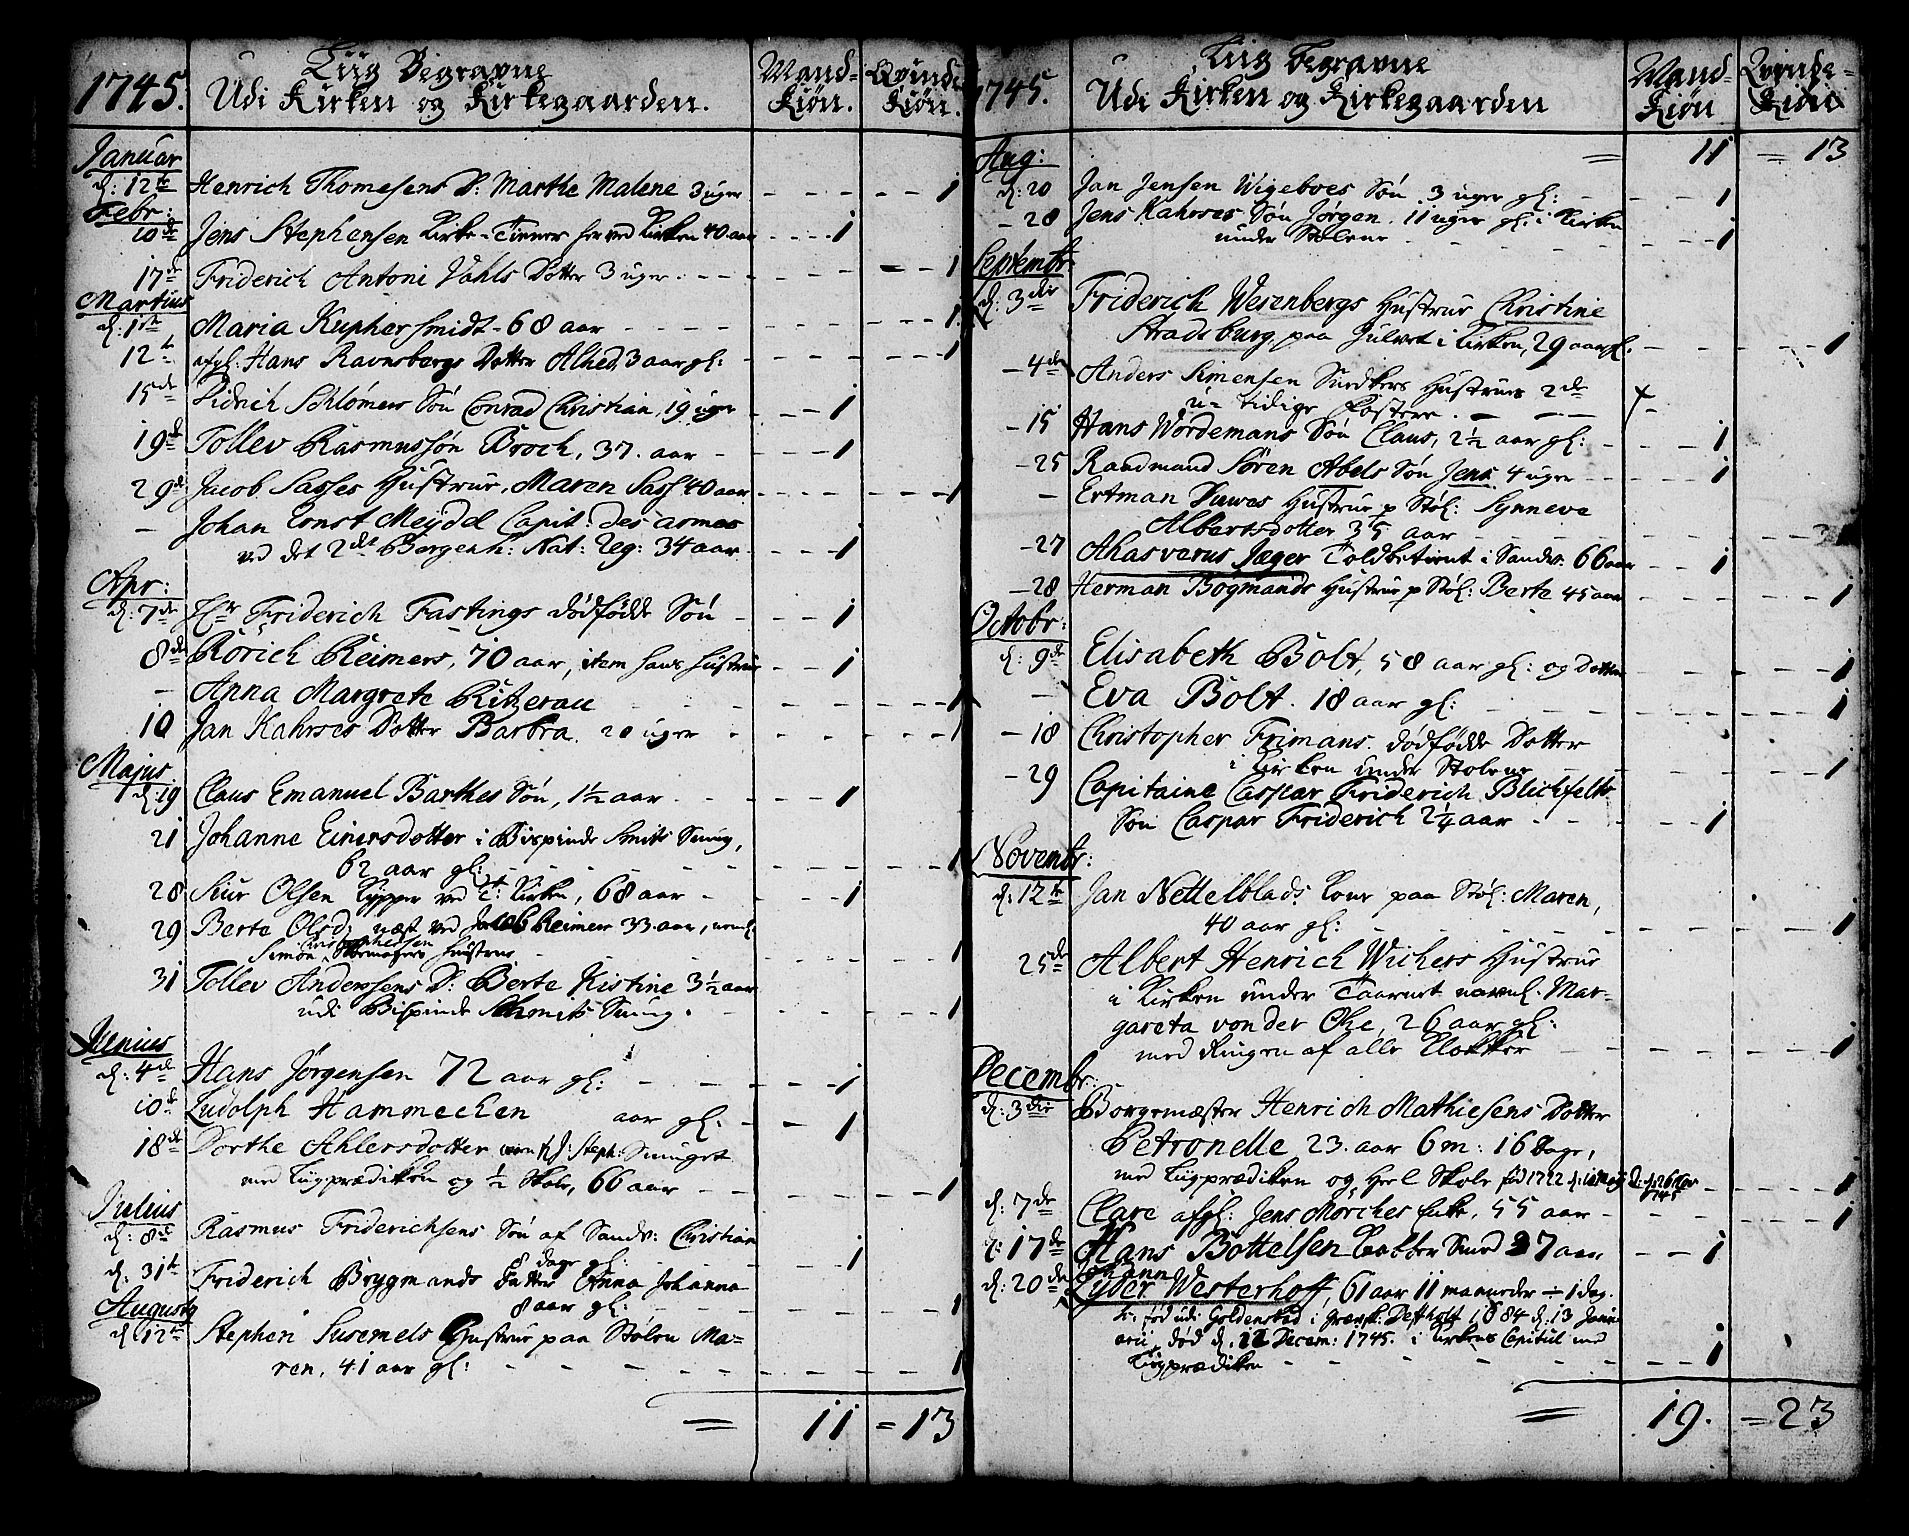 1745. Liig Begravne Mand- Qvinde
Udi Kirken og Kirkegaarden. Kiøn. Kiøn.
Januar
d: 12te Henrich Thomesens D: Marthe Malene 3 uger - - - - 1
Febr:
10de Jens Stephensen Kirke-Tienner her ved Kirken 40 aar - - - 1
17de Friderich Antoni Vahls Dotter 3 uger. - - - - 1
Martius
d: 1ste Maria Kuphersmidt - 68 aar - - - - 1
12te afgl: Hans Ravnsbergs Dotter Alhed, 3 aar gl: - - - 1
15de Didrich Schlømers Søn Conrad Christian, 19 uger - - - 1
19de Tollev Rasmussøn Broch, 37. aar - - - 1
29de Jacob Sasses Hustrue, Maren Sass 40 aar - - - 1
- Johan Ernst Meydel Capit: des armes
ved det 2det Bergenh: Nat: Reg: 34 aar - - - 1
Apr:
d: 7de Hr Friderich Fastings dødfødde Søn - - - 1
8de Rørich Reimers, 70 aar, item hans Hustrue - - 1
- Anna Margrete Ritzerau - - - 1
10 Jan Kahrses Dotter Barbra. 20 uger - - - 1
Majus
d: 19 Claus Emanuel Barthes Søn, 1½ aar - - - 1
21 Johanne Einersdotter i Bispinde Smits Smug,
62 aar gl: - - - 1
28 Siur Olsen Kypper ved Kirken, 68 aar - - - 1
29 Berte Olsd: næst ved Jacob Reimers 33 aar,
Simon Hustrue - - - 1
31 Tollev Anderssens D: Berte Kistine 3½ aar
udi Bispinde Schmits Smug. - - - 1
Junius
d: 4de Hans Jørgensen 72 aar gl: - - - 1
10de Ludolph Hammechen aar gl: - - 1
18de Dorthe Ahlersdotter Steph: Smuget
med Liigprædiken og ½ Skole, 66 aar - - - 1
Julius
d: 8de Rasmus Friderichsens Søn af Sandv: Christian
8 dage gl: - - - 1
d: 31te Friderich Brygmands Datter Anna Johanna
8 aar gl: - - - 1
Augusty
d: 12te Stephen Susemels Hustrue paa Stølen Ma-
ren, 41 aar gl: - - - 1
= 11 = 13
1745. Liig Begravne Mand- Qvinde-
Udi Kirken og Kirkegaarden Kiøn Kiøn
Aug: = 11 = 13
d: 20 Jan Jensen Wigeboes Søn 3 uger gl: - - - 1
- 28 Jens Kahrses Søn Jørgen. 11 uger gl: i Kirken
under Stolene - - - 1
Septembr:
d: 3die Friderich Wesenbergs Hustrue Christine
Stradsburg, paa Gulvet i Kirken, 29 aar gl. - - - 1
- 4de Anders Simensen Hustrues 2de
u-tidige Fostere. - - -
- 15 Hans Wordemans Søn Claus, 2½ aar gl: - - - 1
- 25 Raadmand Søren Abels Søn Jens 4 uger - - - 1
- Ertman Duwes Hustrue p Støl: Synneve
Albertsdotter 35 aar - - -
- 27 Ahasverus Jæger Toldbetient i Sandv. 66 aar - - 1
- 28 Herman Bøgmands Hustrue p Støl: Berte 45 aar - - - 1
Octobr:
d: 9de Elisabeth Bolt, 58 aar gl: og Dotter - - - 1
- Eva Bolt. 18 aar gl: - - - 1
- 18 Christopher Frimans dødfødde Dotter
i Kirken under Stolene - - - 1
- 29 Capitaine Caspar Friderich Blichfelts
Søn Caspar Friderich 2¼ aar - - - 1
Novembr:
d: 12te Jan Nettelblads Kone paa Støl: Maren,
40 aar gl: - - - 1
25de Albert Henrich Wichers Hustrue
i Kirken under Taarnet navnl. Mar-
gareta von der Ohe, 26 aar gl:
med Ringen af alle Klokker - - - 1
Decembr:
d: 3die Borgemæster Henrich Mathiesens Dotter
Petronelle 23. aar 6 m: 16 Dage,
med Liigprædiken og Heel Skole fød 1722 - - - 1
d: 7de Clare afgl: Jens Morches Enke, 55 aar - - - 1
d: 17de Hans Bottelsen Kobber Smed 37 aar - - 1
d: 20de Johann
Lyder Westerhoff, 61 aar 11 maaneder ÷ 1 dag.
er fød udi Goldensted i Grævsk: 1684 d. 13 Janu
arii, død d. 12 Decem: 1745. i Kirkens Capitul med
Liigprædiken - - - 1
= 19. = 23